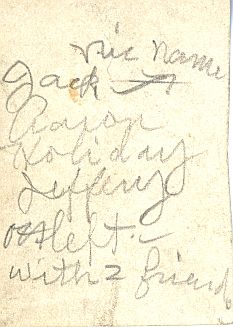 nic name
Jack
Aaron
Holiday
Jeffery
left.
with 2 friend